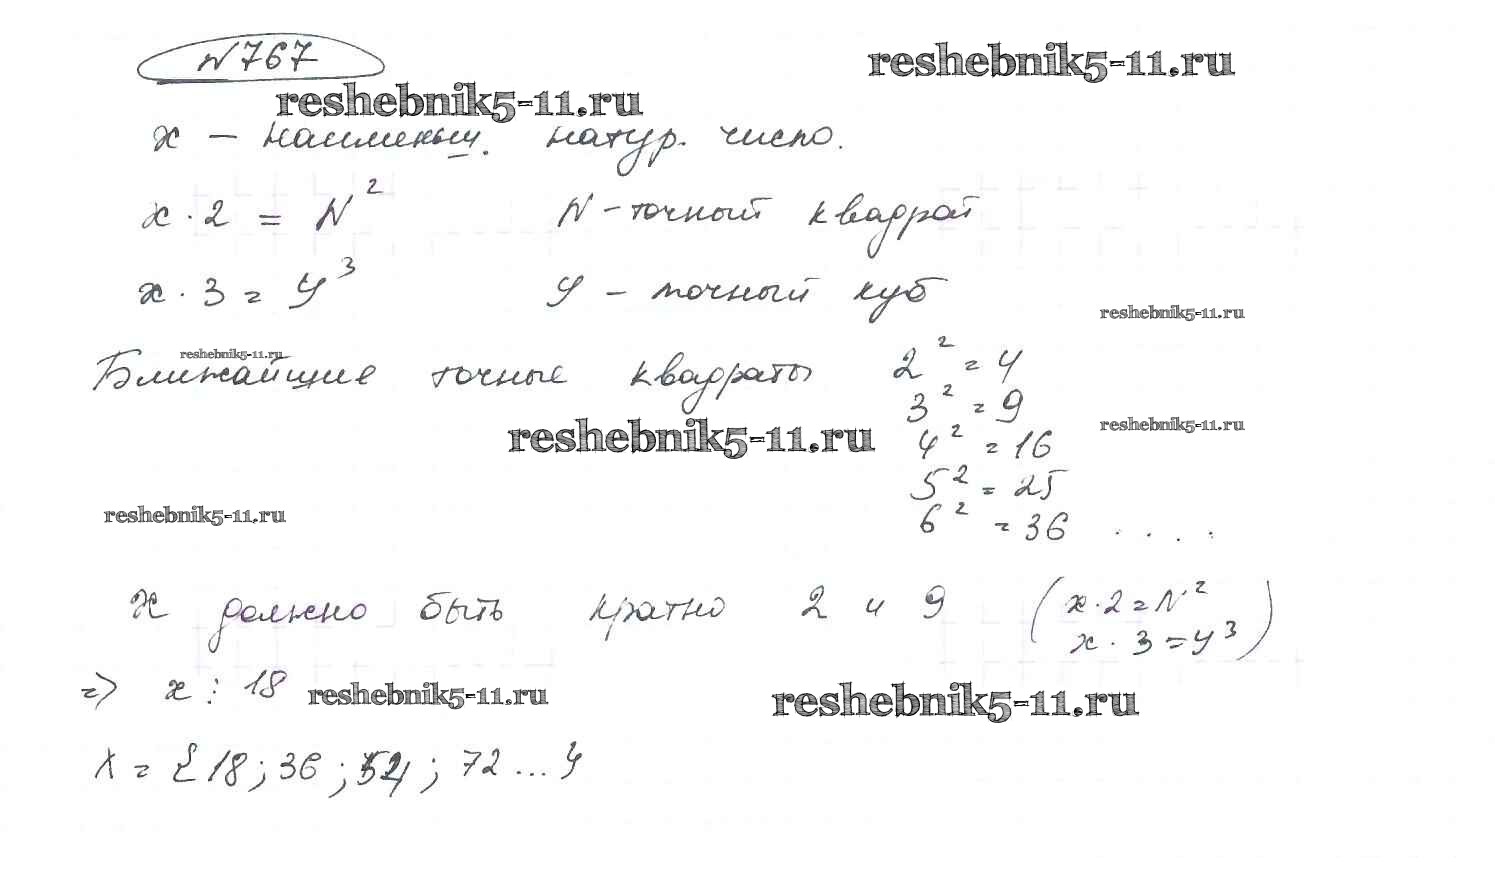 №767
reshebnik5-11.ru
reshebnik5-11.ru
x – наименьш. натур. число.
x · 2 = N²    N – точный квадрат
x · 3 = У³    У – точный куб
reshebnik5-11.ru
reshebnik5-11.ru
Ближайщие точные квадраты 2² = 4
3² = 9
reshebnik5-11.ru
reshebnik5-11.ru
4² = 16
5² = 25
reshebnik5-11.ru
6² = 36 . . . .
x должно быть кратно 2 и 9 (x · 2 = N²
x · 3 = У³)
=> x ⋮ 18
reshebnik5-11.ru
reshebnik5-11.ru
X = {18; 36; 54; 72 ... }